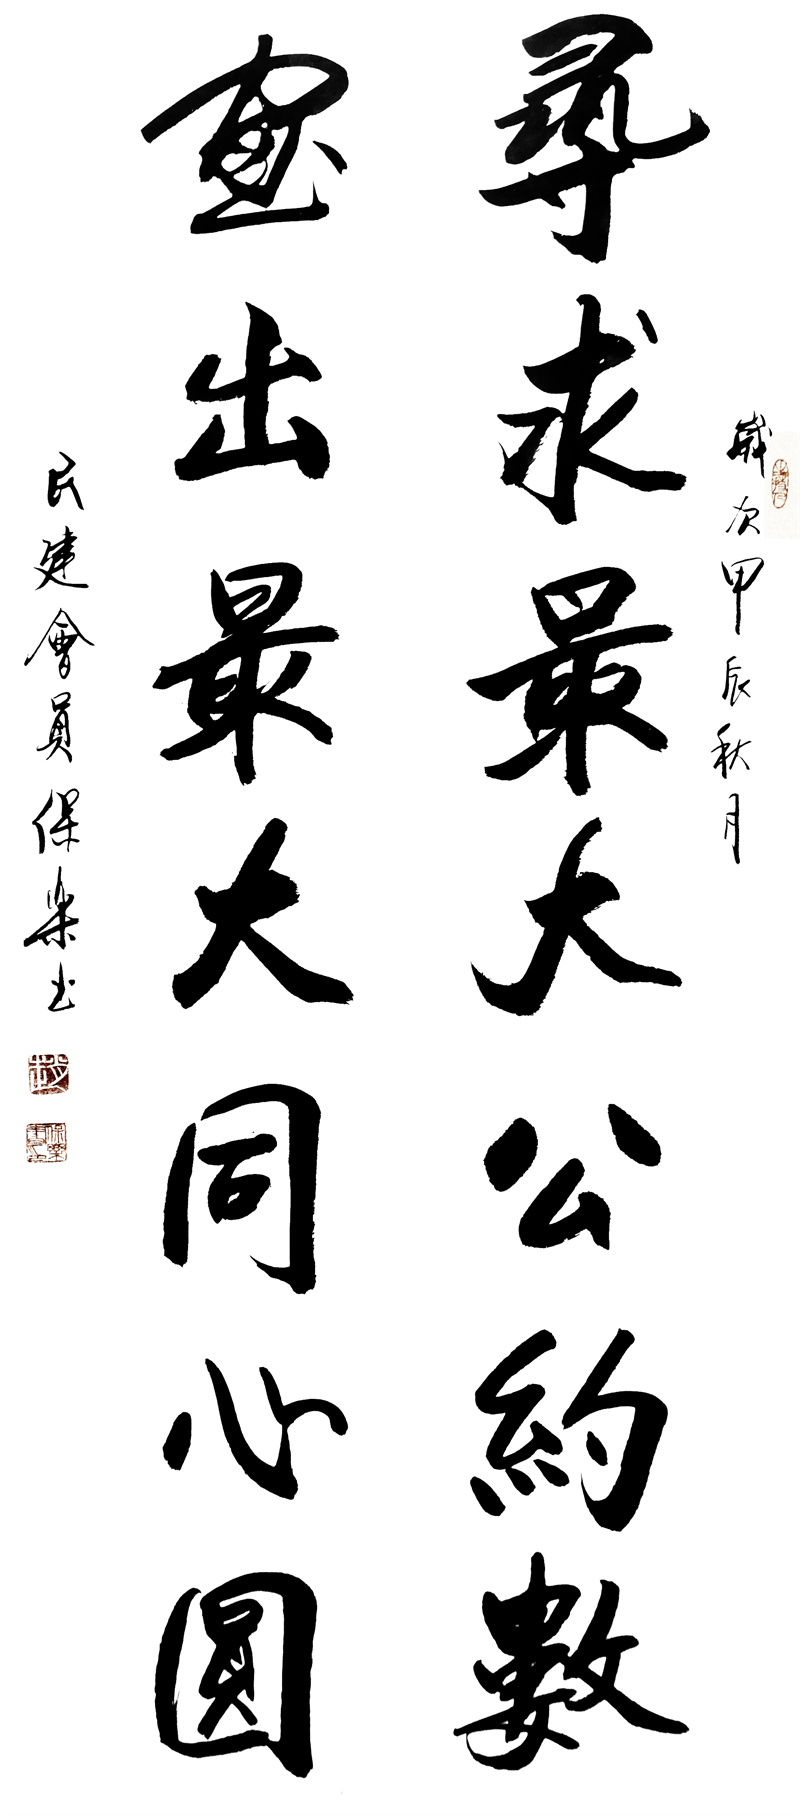 歲次甲辰秋月
尋求最大公約數
畫出最大同心圓
民建會員保樂书
趙